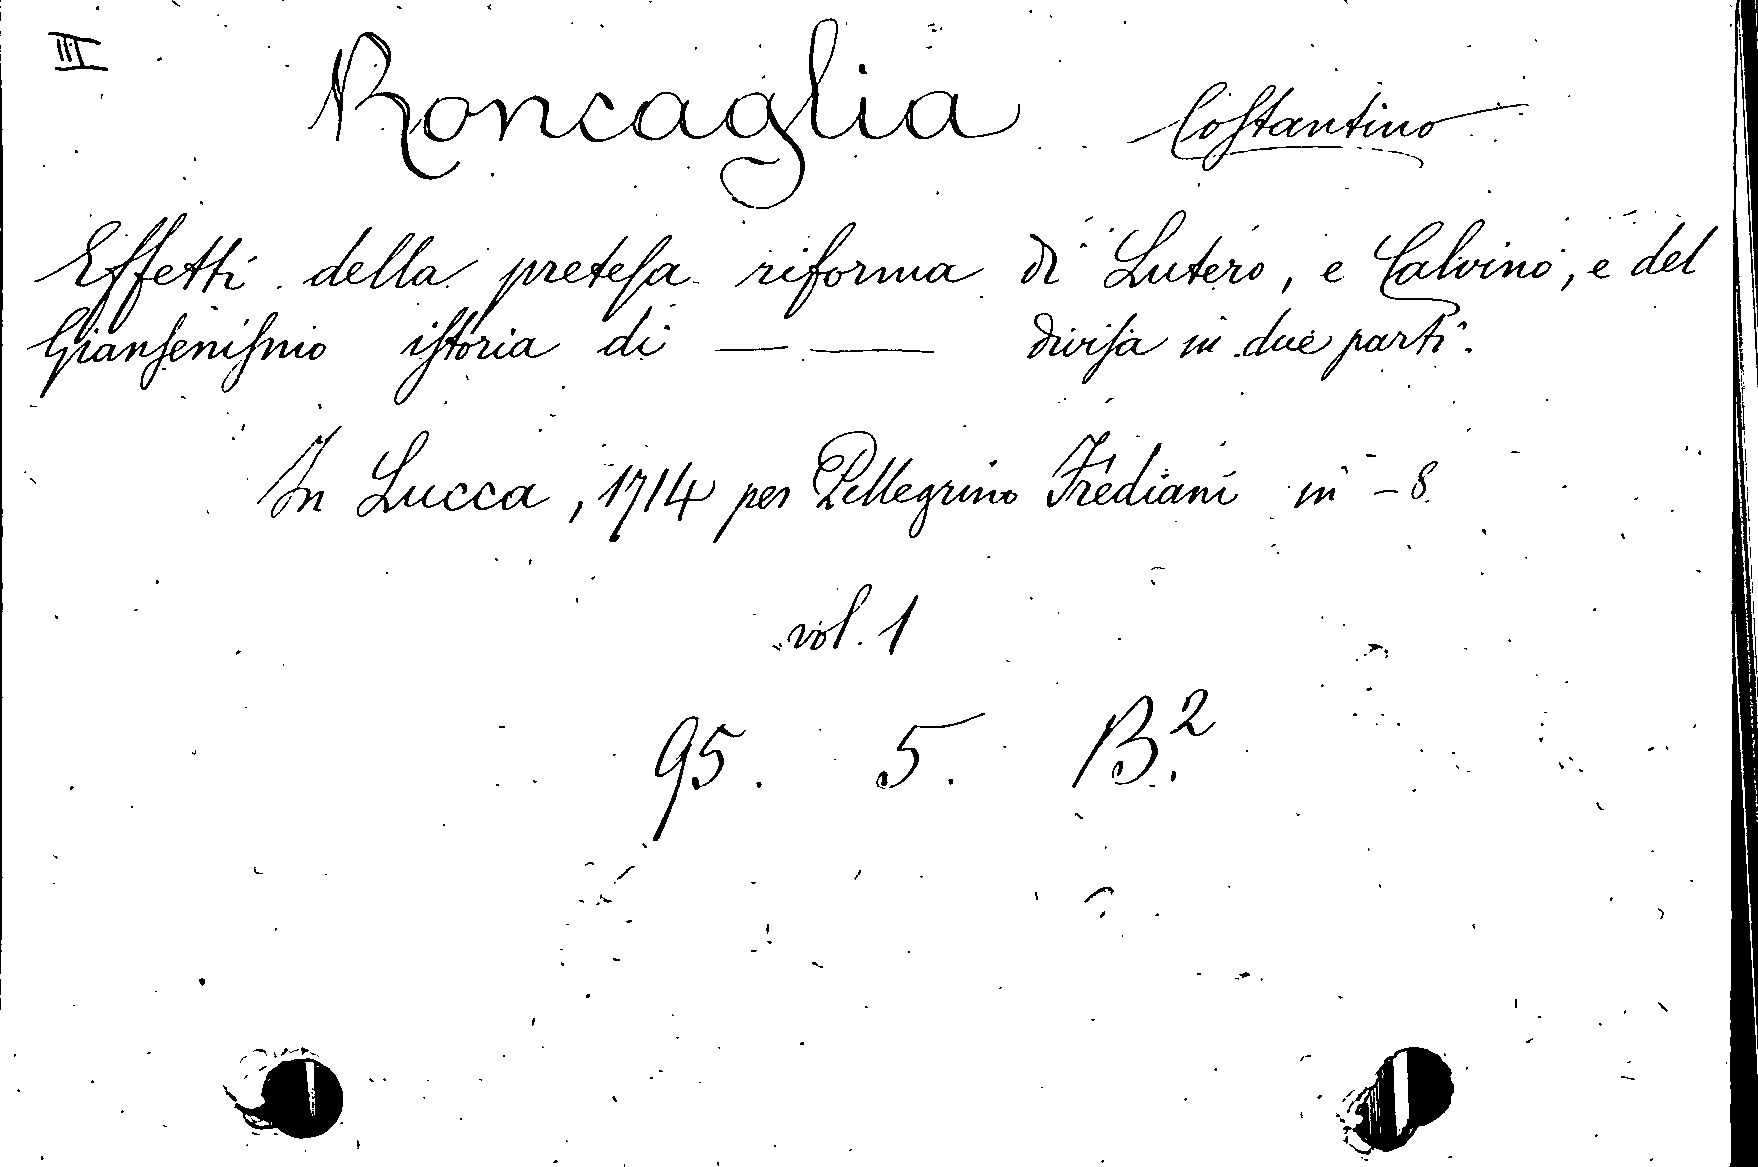 III
Roncaglia Coſtantino
Effetti della preteſa riforma di Lutero, e Calvino, e del
Gianſeniſmo iſtoria di — — diviſa in due parti.
In Lucca, 1714 per Pellegrino Frediani in - 8
vol. 1
95. 5. B.²